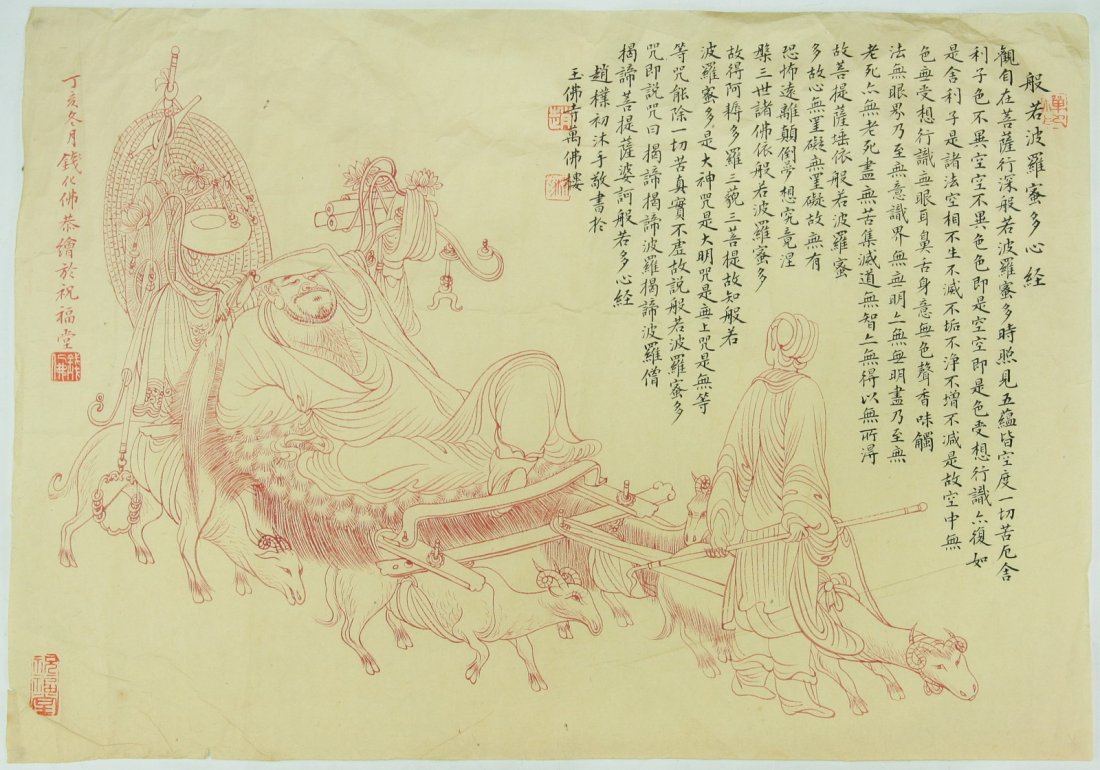 般若波羅蜜多心經
觀自在菩薩行深般若波羅蜜多時照見五蘊皆空度一切苦厄舍
利子色不異空空不異色色即是空空即是色受想行識亦復如
是舍利子是諸法空相不生不滅不垢不淨不增不減是故空中無
色無受想行識無眼耳鼻舌身意無色聲香味觸
法無眼界乃至無意識界無無明亦無無明盡乃至無
老死亦無老死盡無苦集滅道無智亦無得以無所得
故菩提薩埵依般若波羅蜜
多故心無罣礙無罣礙故無有
恐怖遠離顛倒夢想究竟涅
槃三世諸佛依般若波羅蜜多
故得阿耨多羅三藐三菩提故知般若
波羅蜜多是大神咒是大明咒是無上咒是無等
等咒能除一切苦真實不虛故說般若波羅蜜多
咒即說咒曰揭諦揭諦波羅揭諦波羅僧
揭諦菩提薩婆訶般若多心經
趙樸初沐手敬書於
玉佛寺萬佛樓
丁亥冬月錢化佛恭繪於祝福堂